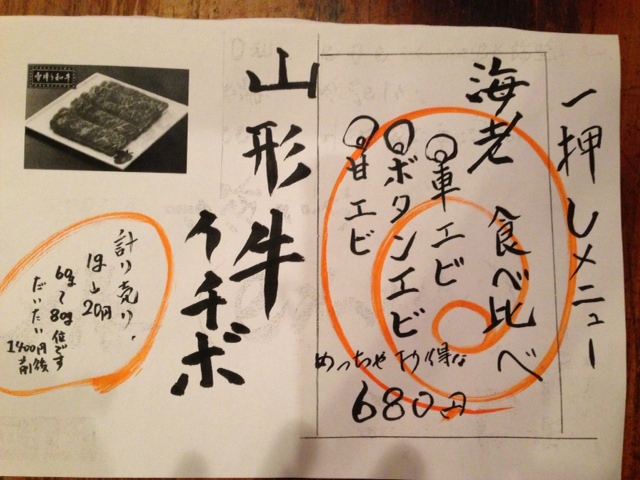 一押しメニュー
海老 食べ比べ
◎車エビ
◎ボタンエビ
◎甘エビ
めっちゃお得な
680円
山形牛
イチボ
計り売り、
1g→20円
60g〜80g位です
だいたい
1400円前後